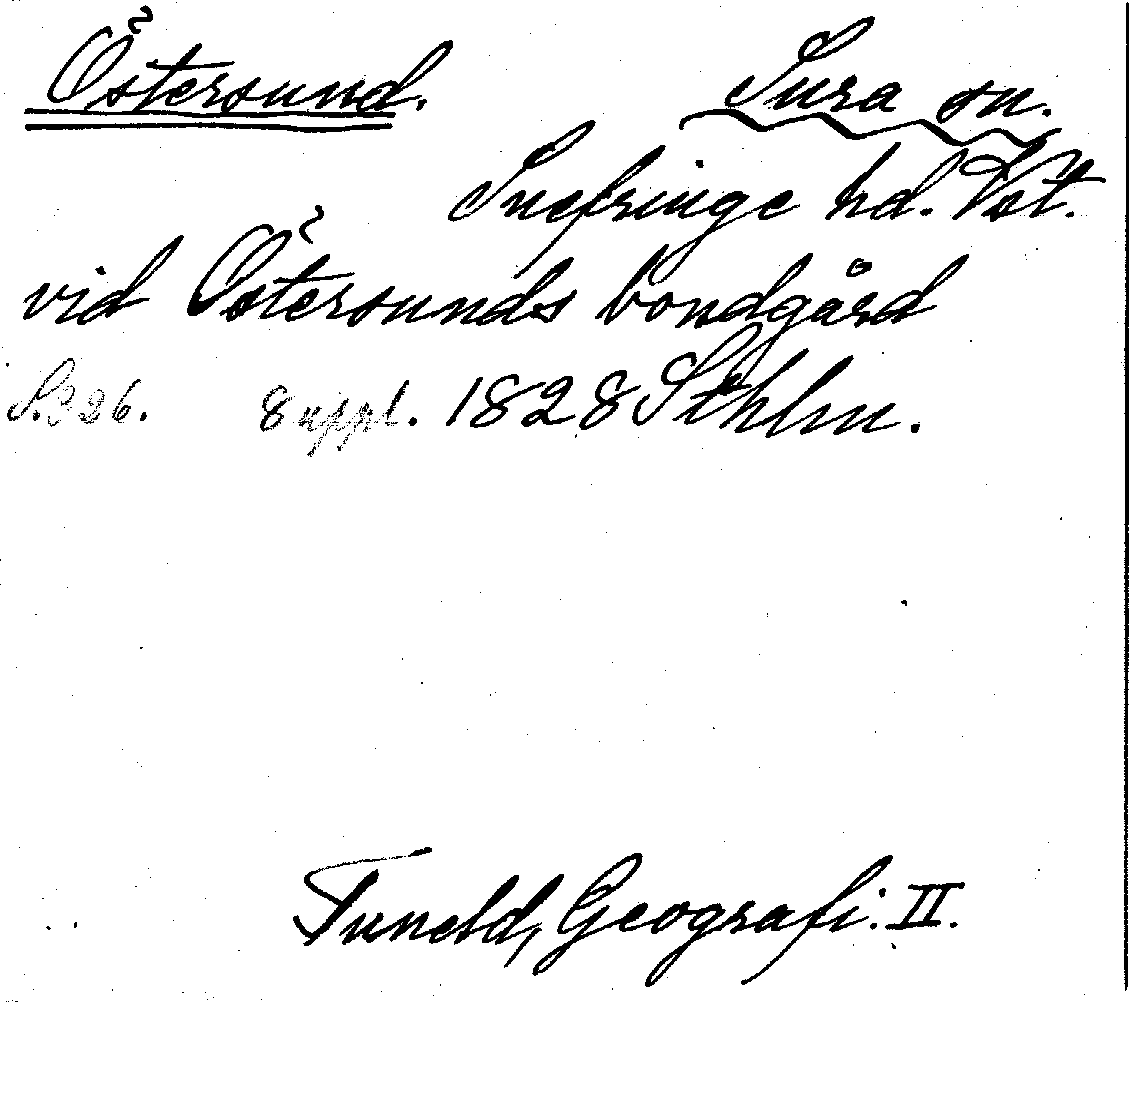 Östersund. Sura sn.
Snefringe hd. Vst.
vid Östersunds bondgård
8 uppl. 1828 Sthlm.
Tuneld, Geografi. II.